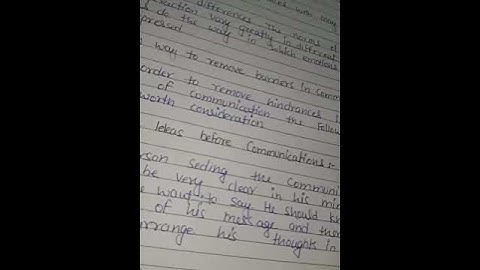 differences The norms of
uction vary greatly in different
do the way in which emotions
pressed.
way to remove barriers in comm
order to remove hindrances
of communication the follow
worth consideration
Ideas before Communications:-
rson seding the communi
be very clear in his mi
want to say He should kn
of his message and then
rrange his thoughts in